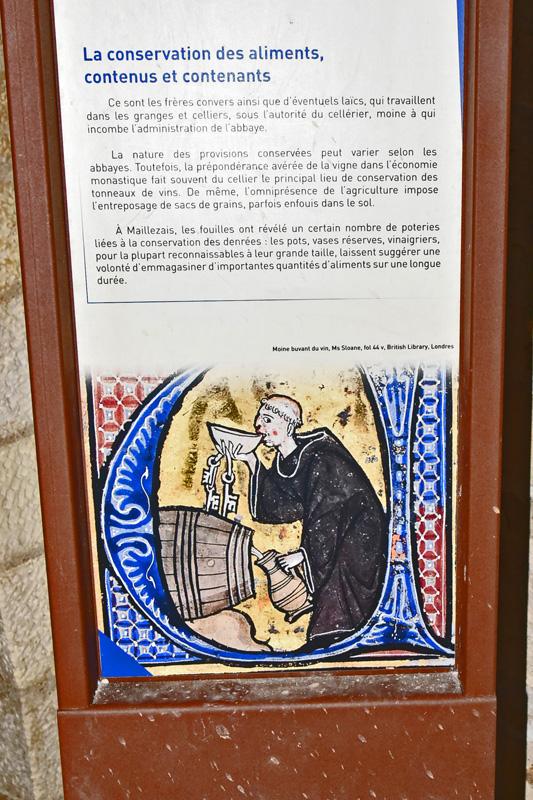 La conservation des aliments,
contenus et contenants
Ce sont les frères convers ainsi que d'éventuels laïcs, qui travaillent
dans les granges et celliers, sous l'autorité du cellérier, moine à qui
incombe l'administration de l'abbaye.
La nature des provisions conservées peut varier selon les
abbayes. Toutefois, la prépondérance avérée de la vigne dans l'économie
monastique fait souvent du cellier le principal lieu de conservation des
tonneaux de vins. De même, l'omniprésence de l'agriculture impose
l'entreposage de sacs de grains, parfois enfouis dans le sol.
À Maillezais, les fouilles ont révélé un certain nombre de poteries
liées à la conservation des denrées : les pots, vases réserves, vinaigriers,
pour la plupart reconnaissables à leur grande taille, laissent suggérer une
volonté d'emmagasiner d'importantes quantités d'aliments sur une longue
durée.
Moine buvant du vin, Ms Sloane, fol 44 v, British Library, Londres